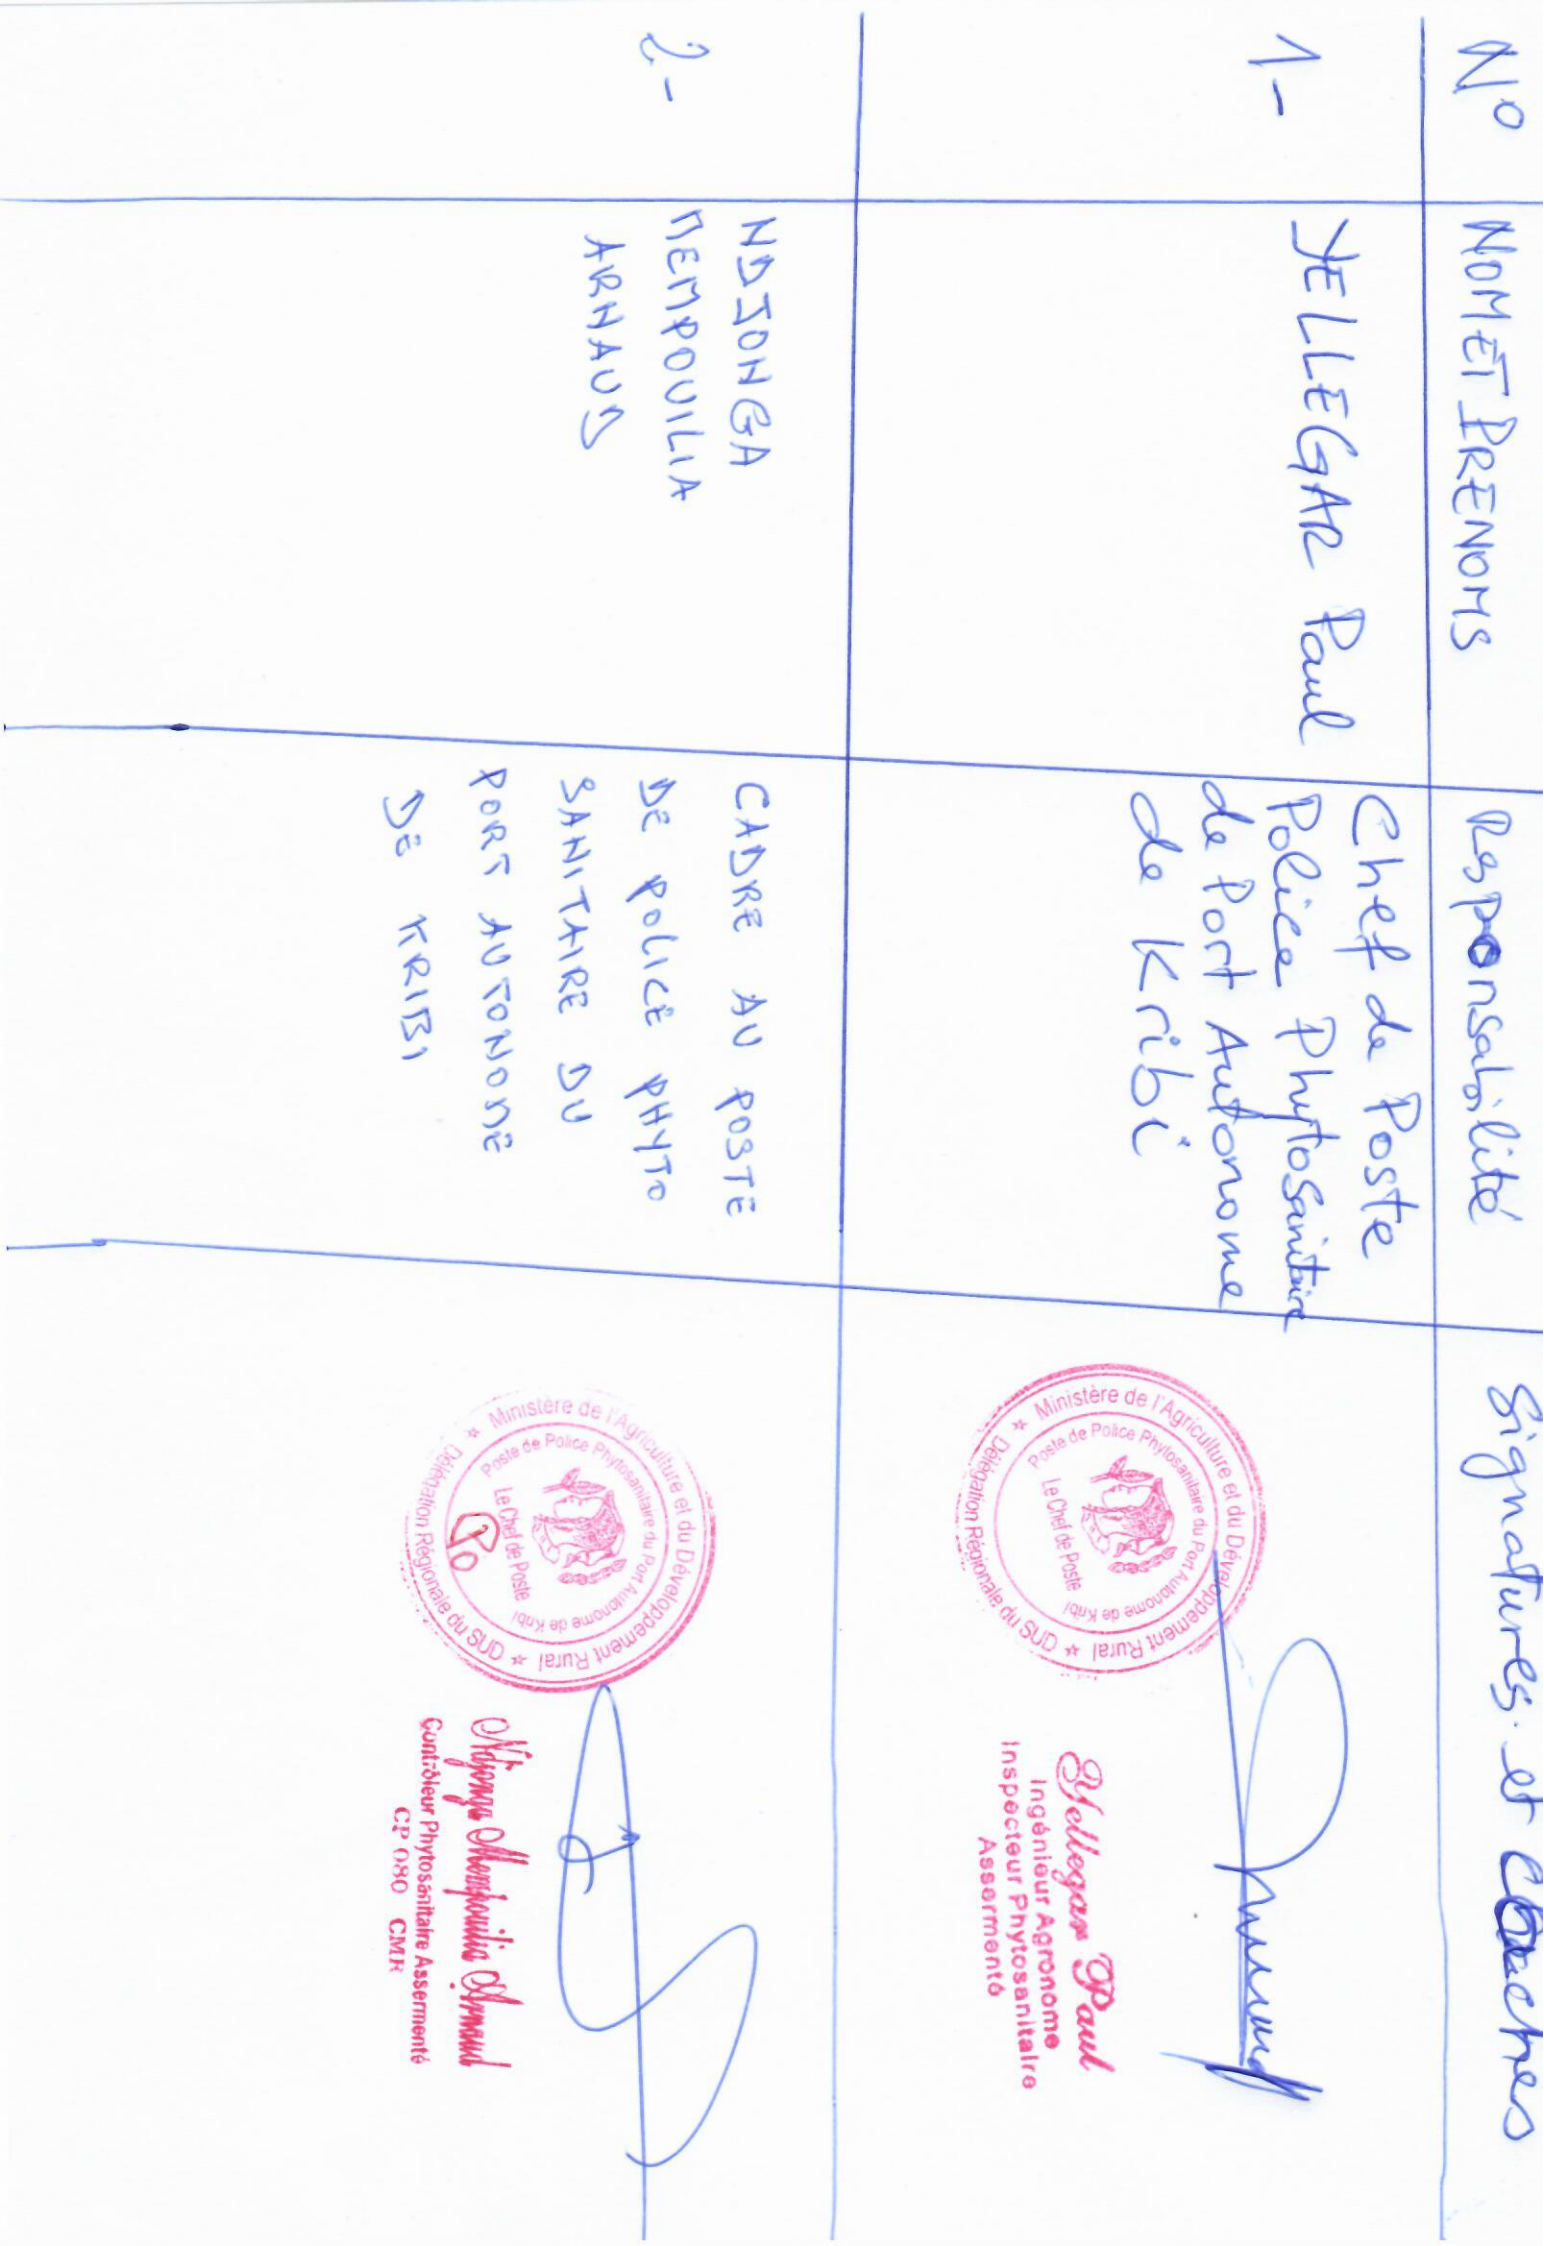 N° NOM ET PRENOMS Responsabilité Signatures et Cachets
1- YELLEGAR Paul
Chef de Poste
Police Phytosanitaire
de Port Autonome
de Kribi
Ministère de l'Agriculture et du Développement Rural
Délégation Régionale du SUD
Poste de Police Phytosanitaire du Port Autonome de Kribi
Le Chef de Poste
Yellegar Paul
Ingénieur Agronome
Inspecteur Phytosanitaire
Assermenté
2-
NDJONGA
MEMPOUILIA
ARNAUD
CADRE AU POSTE
DE POLICE PHYTO
SANITAIRE DU
PORT AUTONOME
DE KRIBI
Ministère de l'Agriculture et du Développement Rural
Délégation Régionale du SUD
Poste de Police Phytosanitaire du Port Autonome de Kribi
Le Chef de Poste
Po
Ndjonga Mempouilia Arnaud
Contrôleur Phytosanitaire Assermenté
CP 080 CMR